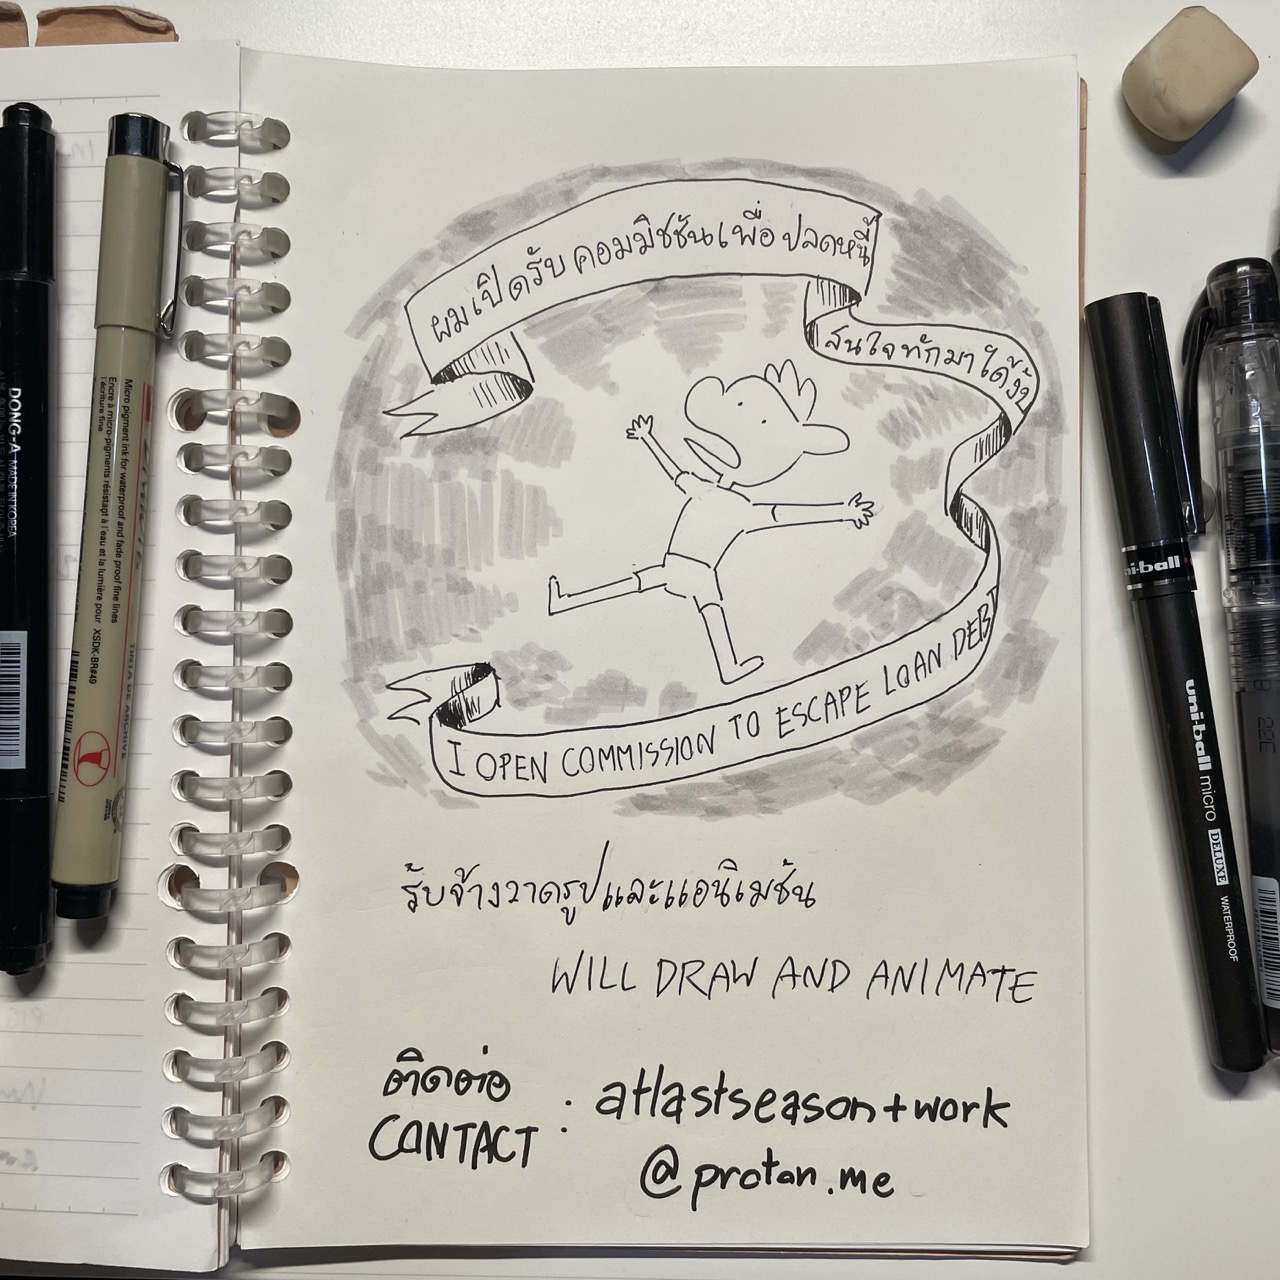 ผมเปิดรับคอมมิชชันเพื่อปลดหนี้
สนใจทักมาได้งับ
I OPEN COMMISSION TO ESCAPE LOAN DEBT
รับจ้างวาดรูปและแอนิเมชัน
WILL DRAW AND ANIMATE
ติดต่อ
CONTACT : atlastseason+work
@protan.me
DONG-A MADE IN KOREA
Micro pigment ink for waterproof and fade proof fine lines
Encre à micro-pigments résistant à l'eau et la lumière pour
l'écriture fine
XSDK-BR#49
uni-ball
uni-ball micro
DELUXE
WATERPROOF